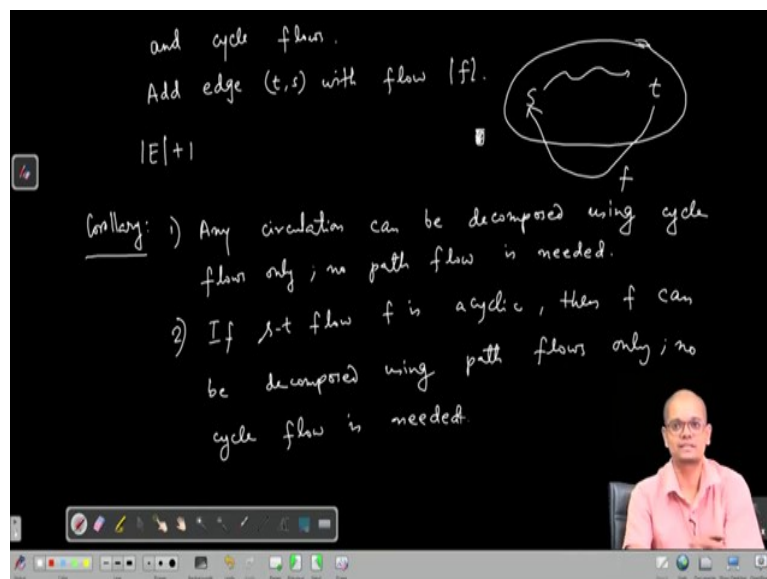 and cycle flows.
Add edge (t,s) with flow |f|.
s t
|E|+1
f
Corollary: 1) Any circulation can be decomposed using cycle
flows only; no path flow is needed.
2) If s-t flow f is acyclic, then f can
be decomposed using path flows only; no
cycle flow is needed.